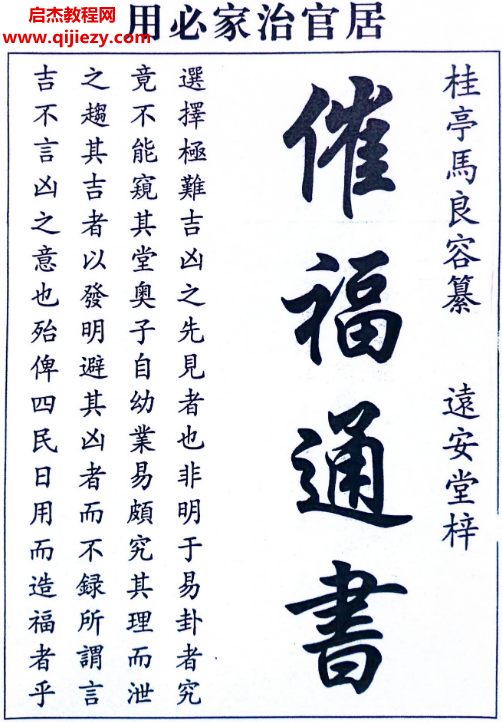 居官治家必用
启杰教程网
www.qijiezy.com
桂亭馬良容纂 遠安堂梓
催福通書
選擇極難吉凶之先見者也非明于易卦者究
竟不能窺其堂奧子自幼業易頗究其理而泄
之趨其吉者以發明避其凶者而不録所謂言
吉不言凶之意也殆俾四民日用而造福者乎